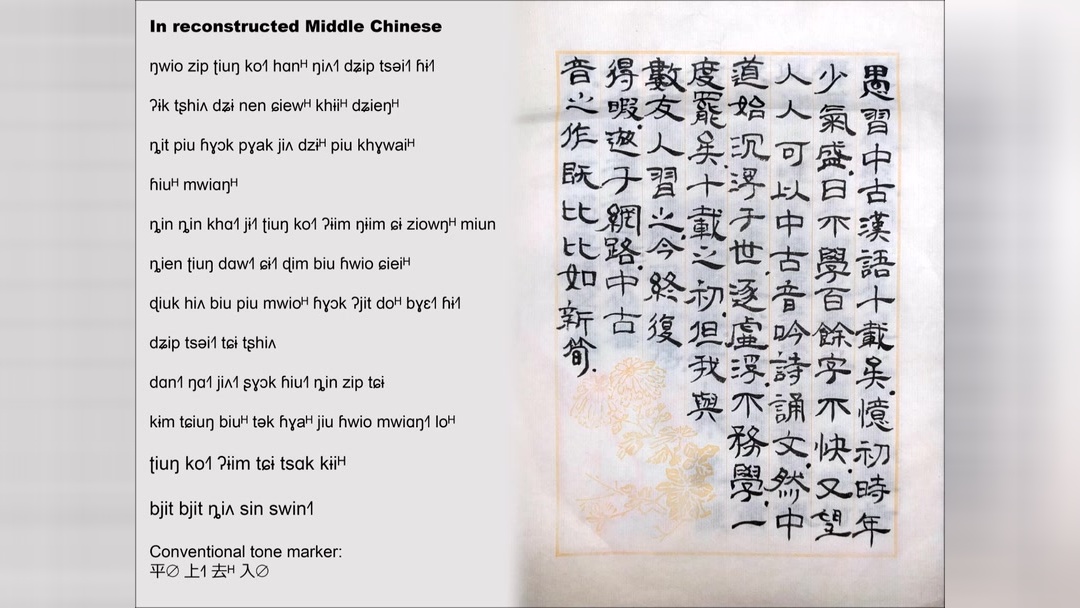 In reconstructed Middle Chinese
ŋwio zip ʈiuŋ ko˧˥ hɑnᴴ ŋiʌ˧˥ dʑip tsəi˧˥ ɦɨ˧˥
ʔɨk tʂhiʌ dʑɨ nen ɕiewᴴ khɨiᴴ dʑieŋᴴ
ȵit piu ɦɣɔk pɣak jiʌ dzɨᴴ piu khɣwaiᴴ
ɦiuᴴ mwiɑŋᴴ
ȵin ȵin khɑ˧˥ jɨ˧˥ ʈiuŋ ko˧˥ ʔɨim ŋɨim ɕɨ ziowŋᴴ miun
ȵien ʈiuŋ dɑw˧˥ ɕɨ˧˥ ɖim biu ɦwio ɕieiᴴ
ɖiuk hiʌ biu piu mwioᴴ ɦɣɔk ʔjit doᴴ bɣɛ˧˥ ɦɨ˧˥
dʑip tsəi˧˥ tɕɨ tʂhiʌ
dɑn˧˥ ŋɑ˧˥ jiʌ˧˥ ʂɣɔk ɦiu˧˥ ȵin zip tɕɨ
kɨm tɕiuŋ biuᴴ tək ɦɣaᴴ jiu ɦwio mwiɑŋ˧˥ loᴴ
ʈiuŋ ko˧˥ ʔɨim tɕɨ tsɑk kɨiᴴ
bjit bjit ȵiʌ sin swin˧˥
Conventional tone marker:
平∅ 上˧˥ 去ᴴ 入∅
愚習中古漢語十載矣憶初時年
少氣盛日不學百餘字不快又望
人人可以中古音吟詩誦文然中
道始沉浮于世逐虛浮不務學一
度罷矣十載之初但我與
數友人習之今終復
得暇遨于網路中古
音之作既比比如新筍